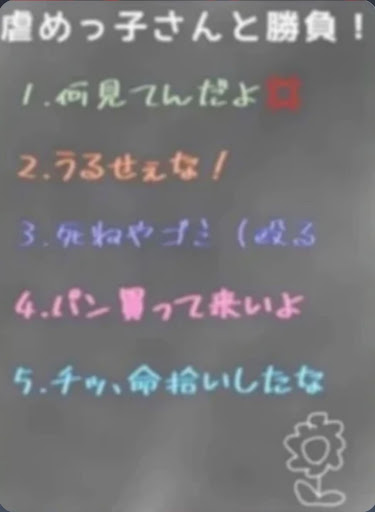 虐めっ子さんと勝負！
1.何見てんだよ💢
2.うるせぇな！
3.死ねやゴミ（殴る
4.パン買って来いよ
5.チッ、命拾いしたな